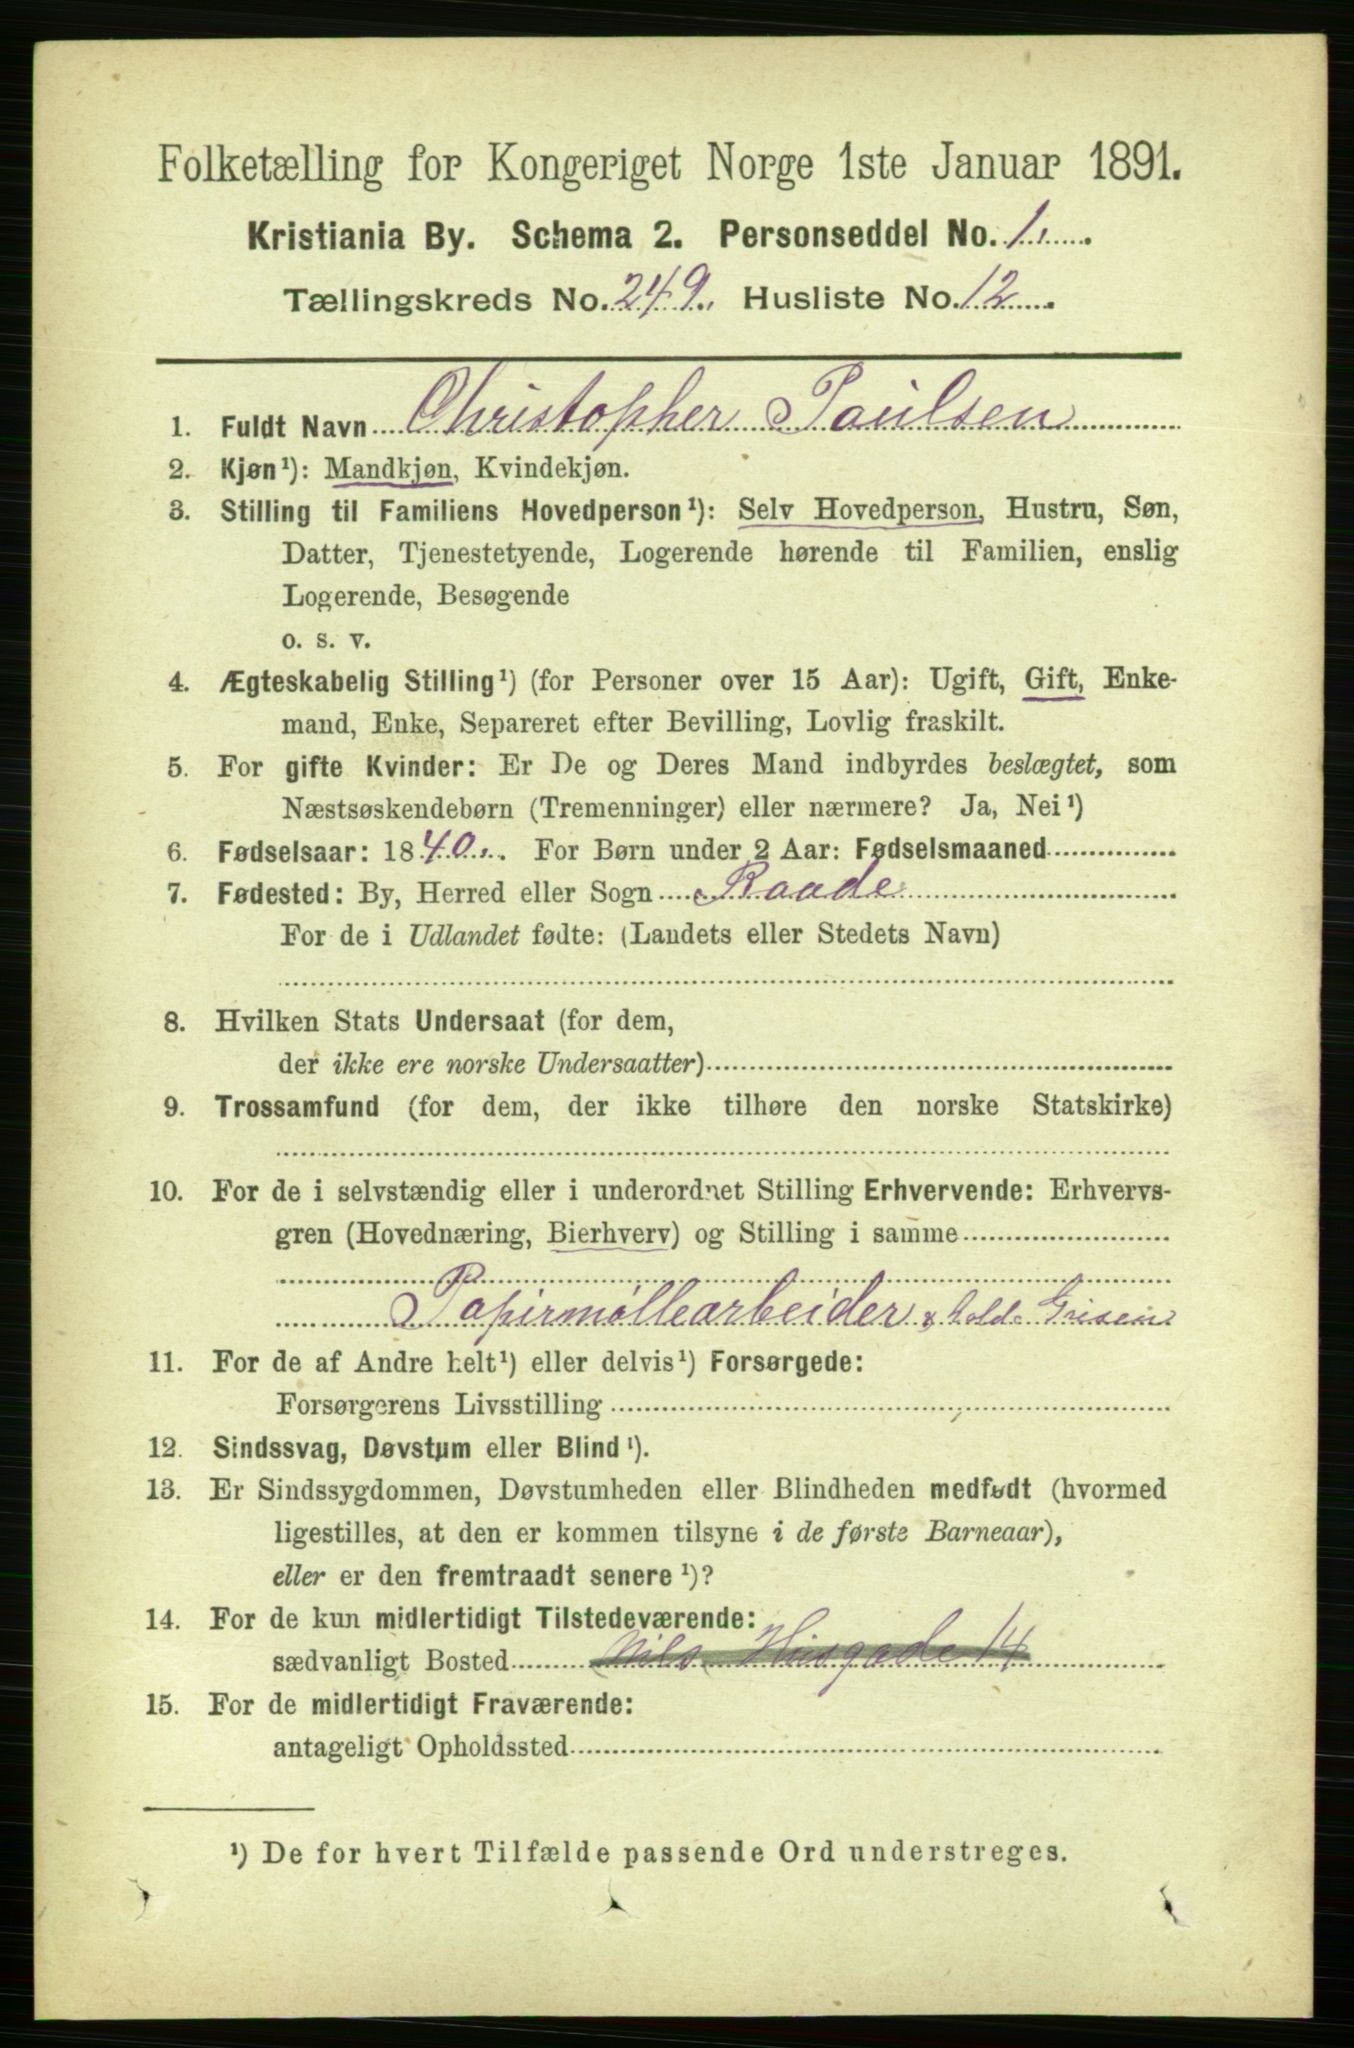 Folketælling for Kongeriget Norge 1ste Januar 1891.
Kristiania By. Schema 2. Personseddel No. 1.
Tællingskreds No. 249. Husliste No. 12
1. Fuldt Navn Christopher Paulsen
2. Kjøn¹): Mandkjøn, Kvindekjøn.
3. Stilling til Familiens Hovedperson¹): Selv Hovedperson, Hustru, Søn,
Datter, Tjenestetyende, Logerende hørende til Familien, enslig
Logerende, Besøgende
o. s. v.
4. Ægteskabelig Stilling¹) (for Personer over 15 Aar): Ugift, Gift, Enke-
mand, Enke, Separeret efter Bevilling, Lovlig fraskilt.
5. For gifte Kvinder: Er De og Deres Mand indbyrdes beslægtet, som
Næstsøskendebørn (Tremenninger) eller nærmere? Ja, Nei¹)
6. Fødselsaar: 1840. For Børn under 2 Aar: Fødselsmaaned
7. Fødested: By, Herred eller Sogn Raade
For de i Udlandet fødte: (Landets eller Stedets Navn)
8. Hvilken Stats Undersaat (for dem,
der ikke ere norske Undersaatter)
9. Trossamfund (for dem, der ikke tilhøre den norske Statskirke)
10. For de i selvstændig eller i underordnet Stilling Erhvervende: Erhvervs-
gren (Hovednæring, Bierhverv) og Stilling i samme
Papirmøllearbeider & hold. Grisen
11. For de af Andre helt¹) eller delvis¹) Forsørgede:
Forsørgerens Livsstilling
12. Sindssvag, Døvstum eller Blind¹).
13. Er Sindssygdommen, Døvstumheden eller Blindheden medfødt (hvormed
ligestilles, at den er kommen tilsyne i de første Barneaar),
eller er den fremtraadt senere¹)?
14. For de kun midlertidigt Tilstedeværende:
sædvanligt Bosted Nils Huusgade 14
15. For de midlertidigt Fraværende:
antageligt Opholdssted
¹) De for hvert Tilfælde passende Ord understreges.